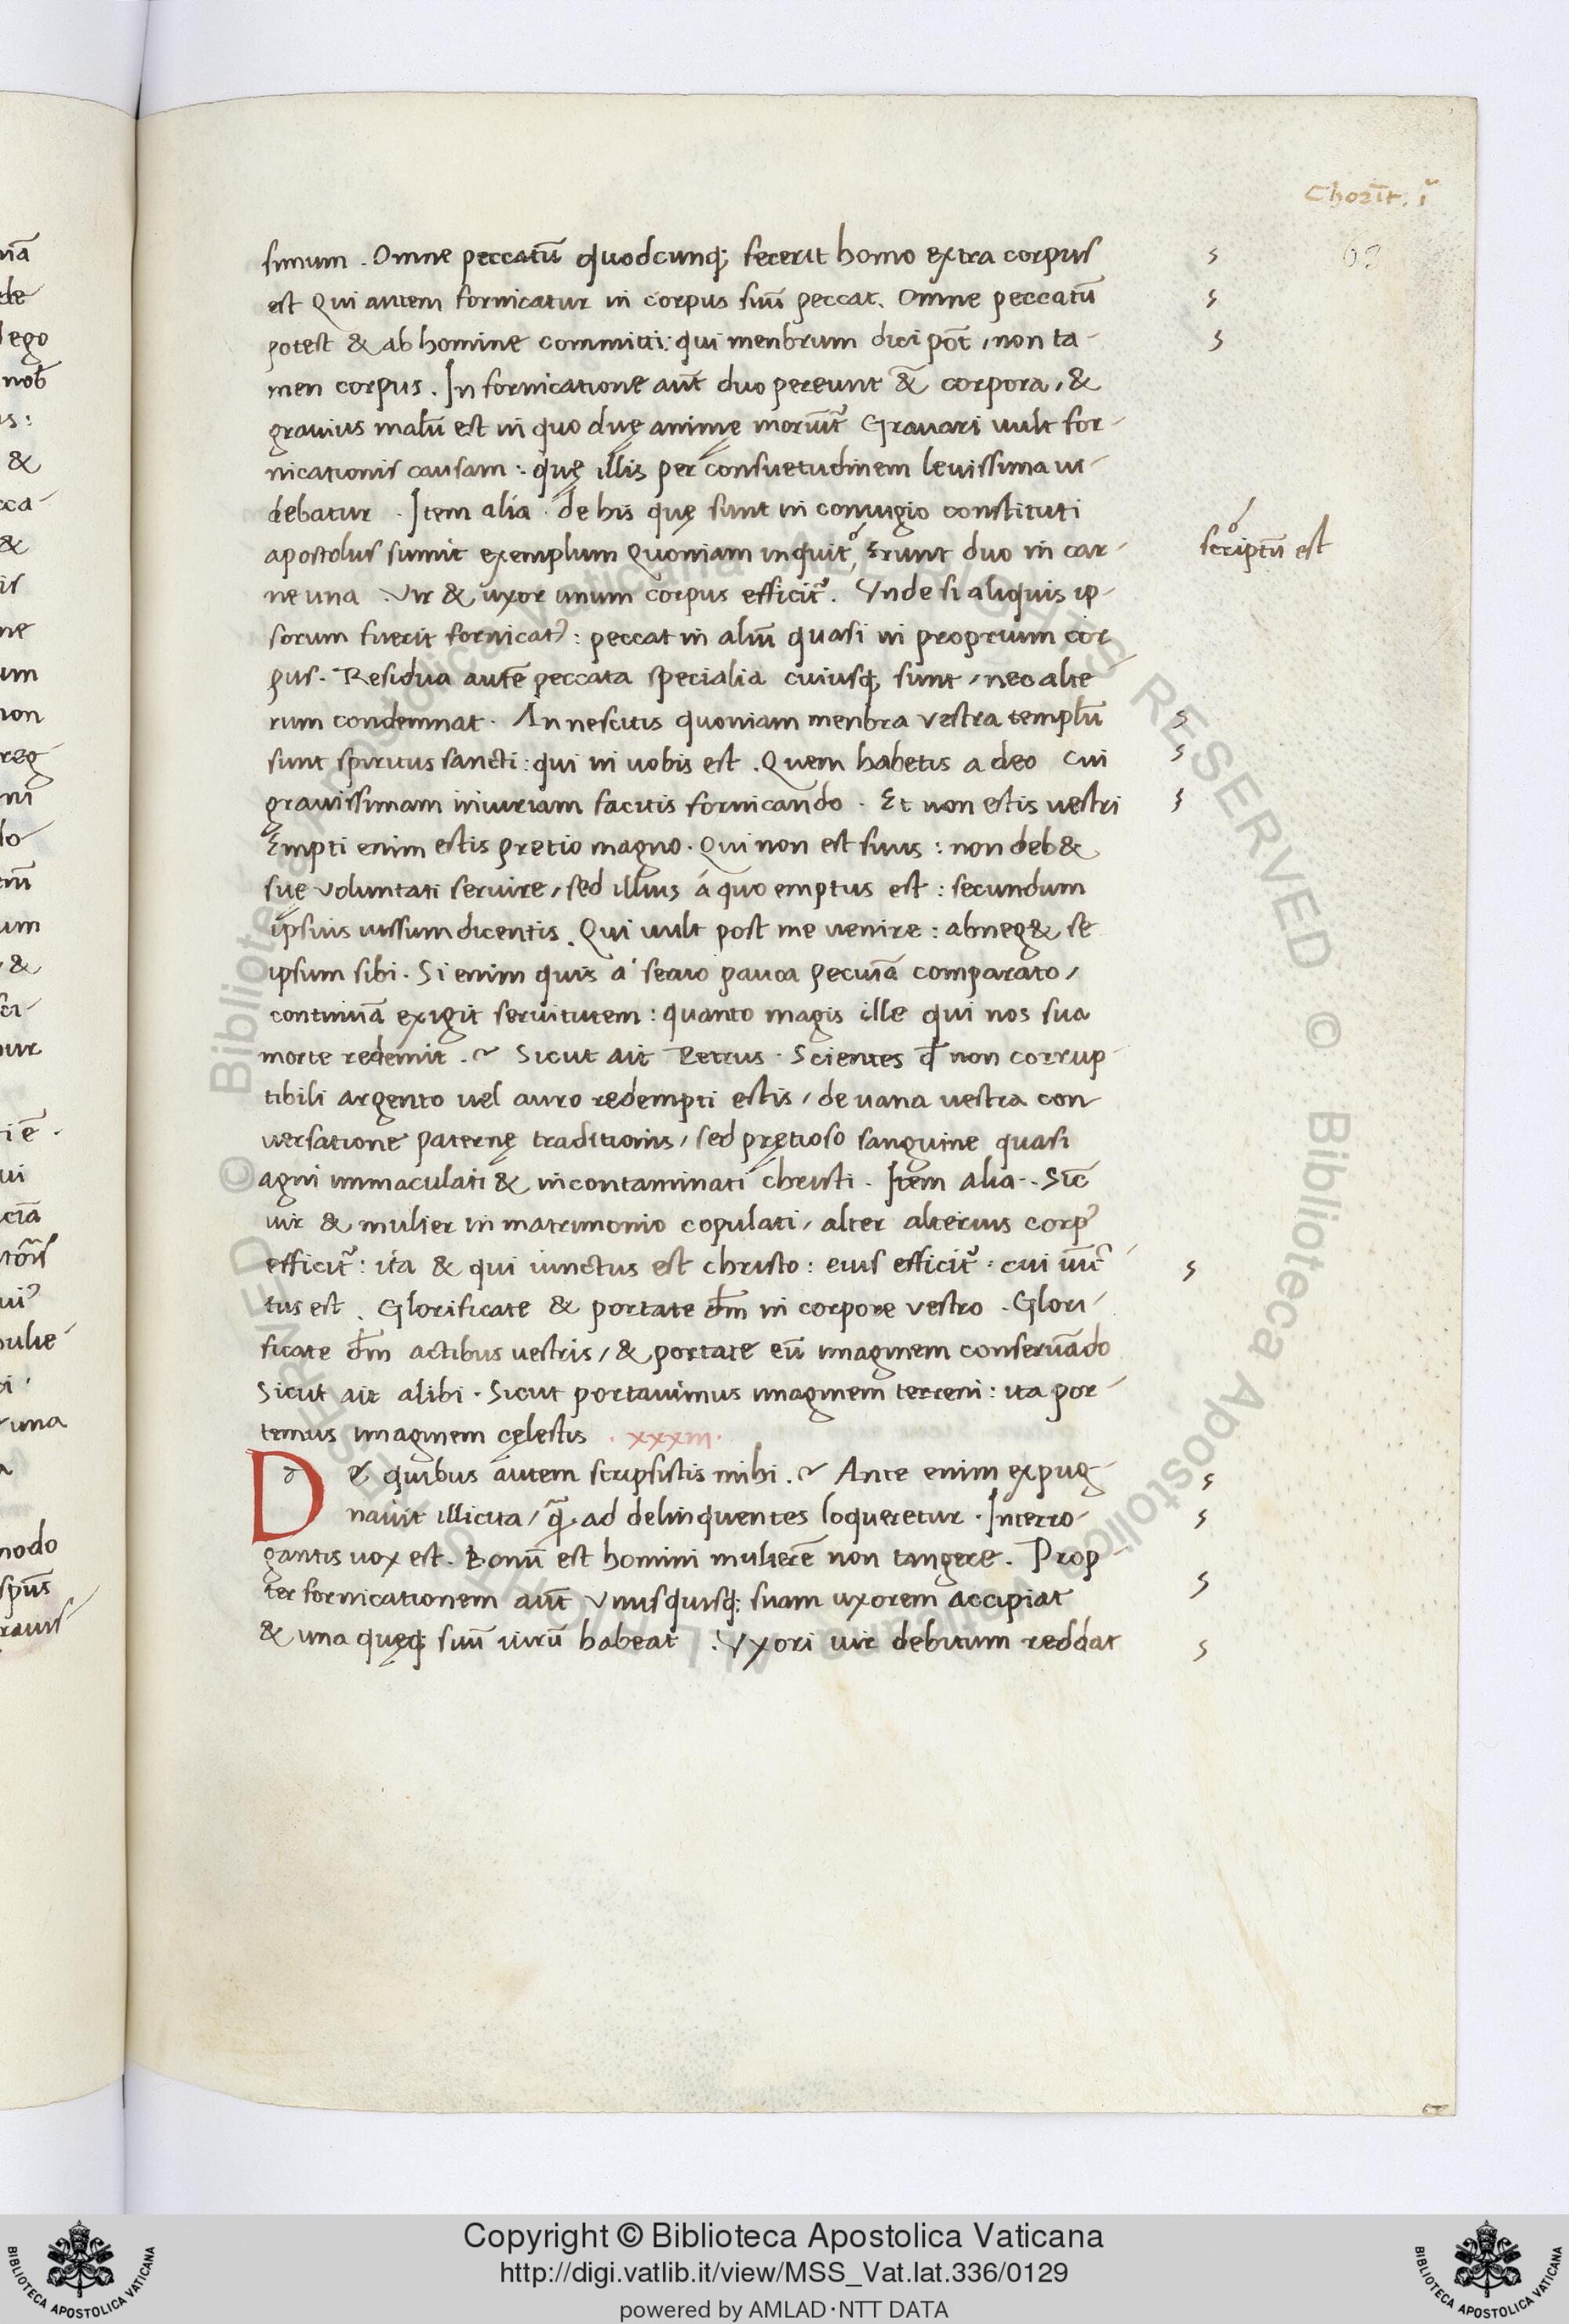 Chorīt. i
63
simum . Omne peccatū quodcunq; fecerit homo extra corpus
est Qui autem fornicatur in corpus suū peccat. Omne peccatū
potest & ab homine committi: qui menbrum dici pōt, non ta-
men corpus. In fornicatione aūt duo pereunt & corpora, &
grauius malū est in quo duę animę moriūt Grauari uult for-
nicationis causam: quę illis per consuetudinem leuissima ui-
debatur . Item alia . de his quę sunt in coniugio constituti
apostolus sumit exemplum Quoniam inquit, Erunt duo in car-
scriptū est
ne una . Vir & uxor unum corpus efficit. Vnde si aliquis ip-
sorum fuerit fornicat: peccat in aliū quasi in proprium cor
pus. Residua autē peccata specialia cuiusq; sunt, nec alte
rum condemnat. An nescitis quoniam menbra vestra templū
sunt spiritus sancti: qui in uobis est . Quem habetis a deo cui
grauissimam iniuriam facitis fornicando . Et non estis vestri
Empti enim estis pretio magno. Qui non est suus: non deb&
suę voluntati seruire, sed illius á quo emptus est: secundum
ipsius iussum dicentis. Qui uult post me uenire: abneg& se
ipsum sibi. Si enim quis á seruo pauca pecuīā comparato,
continuā exigit seruitutem: quanto magis ille qui nos sua
morte redemit. Sicut ait Petrus. Scientes q̄ non corrup-
tibili argento uel auro redempti estis, de uana uestra con
uersatione paternę traditionis, sed prętioso sanguine quasi
agni immaculati & incontaminati christi . Item alia. Sic̄
uir & mulier in matrimonio copulati, alter alterius corp
efficit: ita & qui iunctus est christo: eius efficit: cui iūc
tus est . Glorificate & portate dm̄ in corpore vestro . Glori-
ficate dm̄ actibus uestris, & portate eū imaginem conseruādo
Sicut ait alibi . Sicut portauimus imaginem terreni: ita por-
temus imaginem cęlestis . xxxiii.
De quibus autem scripsistis mihi . Ante enim expug-
nauit illicita, q̄ ad delinquentes loqueretur . Interro-
gantis uox est. Bonū est homini mulierē non tangere. Prop-
ter fornicationem aūt Vnusquisq; suam uxorem accipiat
& una quęq; suū uirū habeat . Vxori uir debitum reddat
Copyright © Biblioteca Apostolica Vaticana
http://digi.vatlib.it/view/MSS_Vat.lat.336/0129
powered by AMLAD·NTT DATA